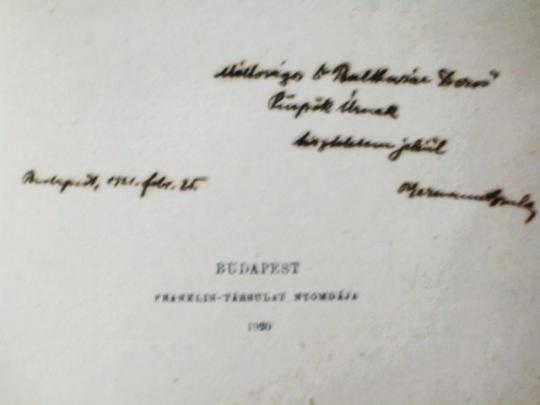 Méltóságos Dr Balthazár Dezső
Püspök Úrnak
tiszteletem jeléül
Budapest, 1921. febr. 25.
Hermann Gyula
BUDAPEST
FRANKLIN-TÁRSULAT NYOMDÁJA
1920